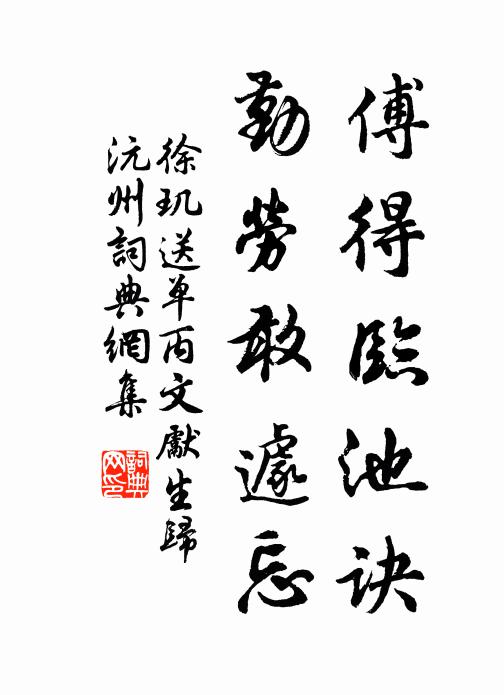 傅得臨池诀
勤勞敢遽忘
徐玑送单丙文獻生歸
沅州詞典網集
詞典网印